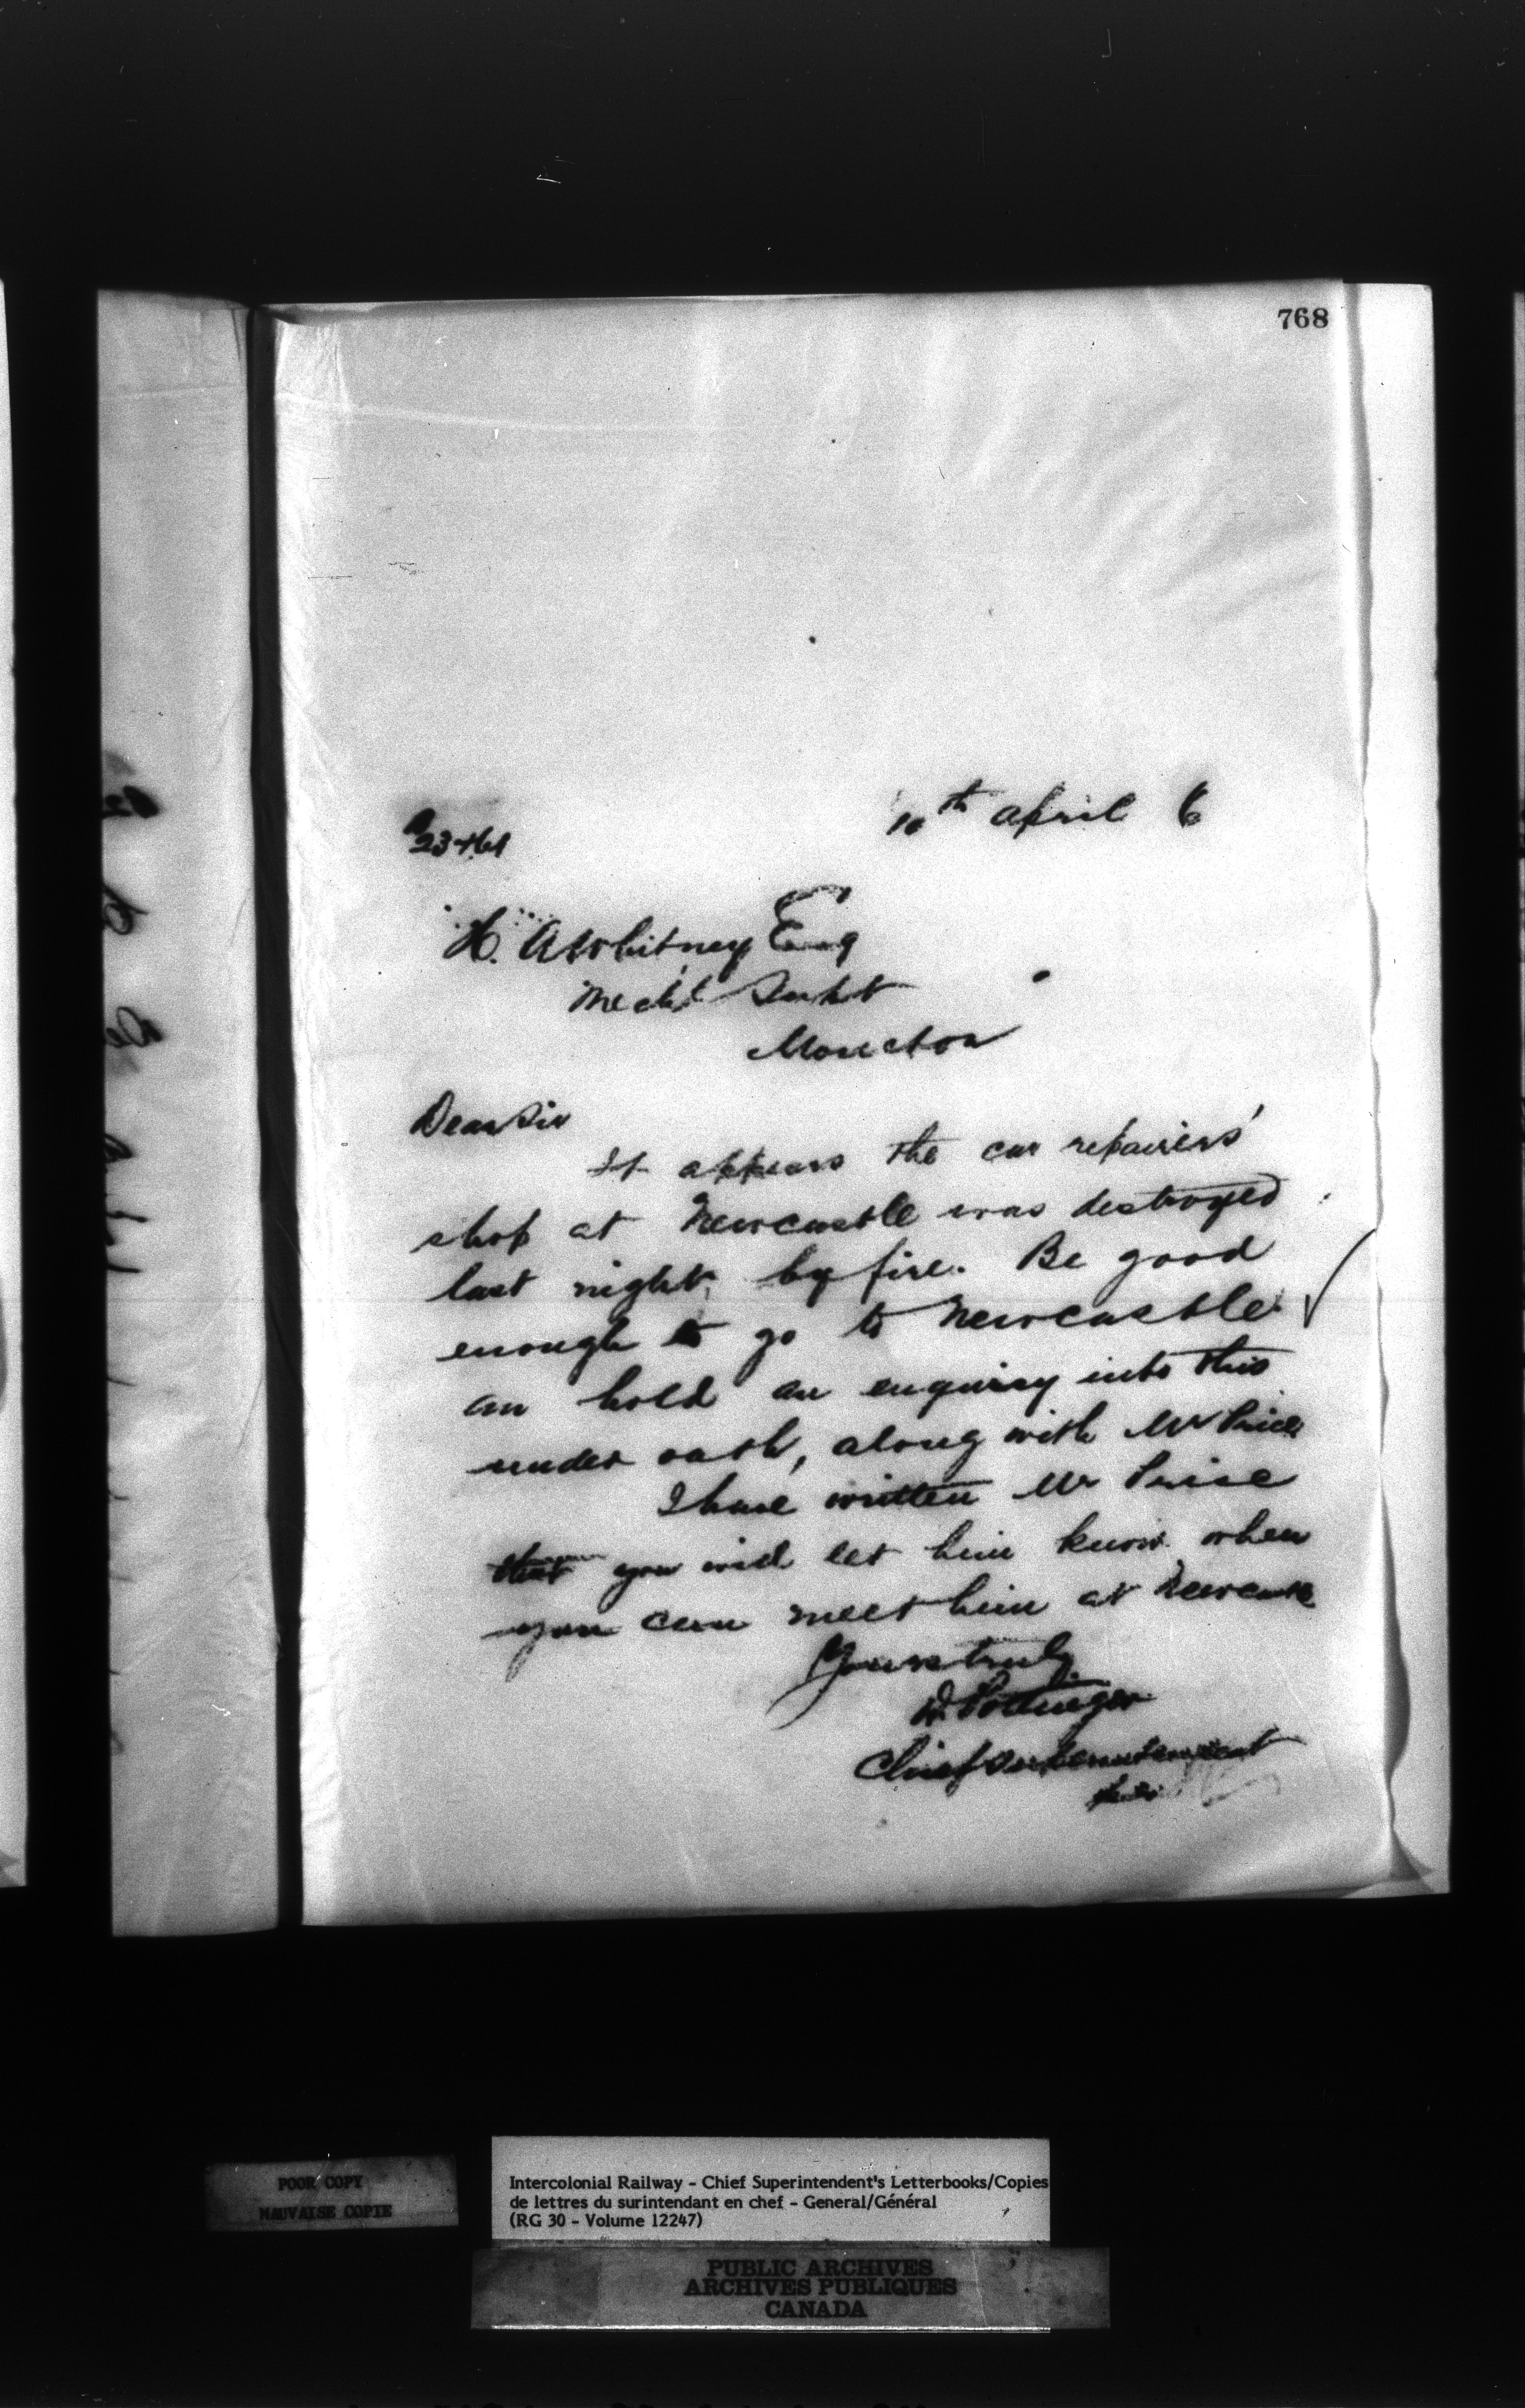 768
10th April 6
H. A Whitney Esq
Mech'l Supt
Moncton
Dear Sir
It appears the car repairers'
shop at Newcastle was destroyed
last night, by fire. Be good
enough to go to Newcastle
an hold an enquiry into this
under oath, along with Mr Price
I have written Mr Price
that you will let him know when
you can meet him at Newcastle
Yours truly
D. Pottinger
Chief Superintendent
POOR COPY
MAUVAISE COPIE
Intercolonial Railway - Chief Superintendent's Letterbooks/Copies
de lettres du surintendant en chef - General/Général
(RG 30 - Volume 12247)
PUBLIC ARCHIVES
ARCHIVES PUBLIQUES
CANADA